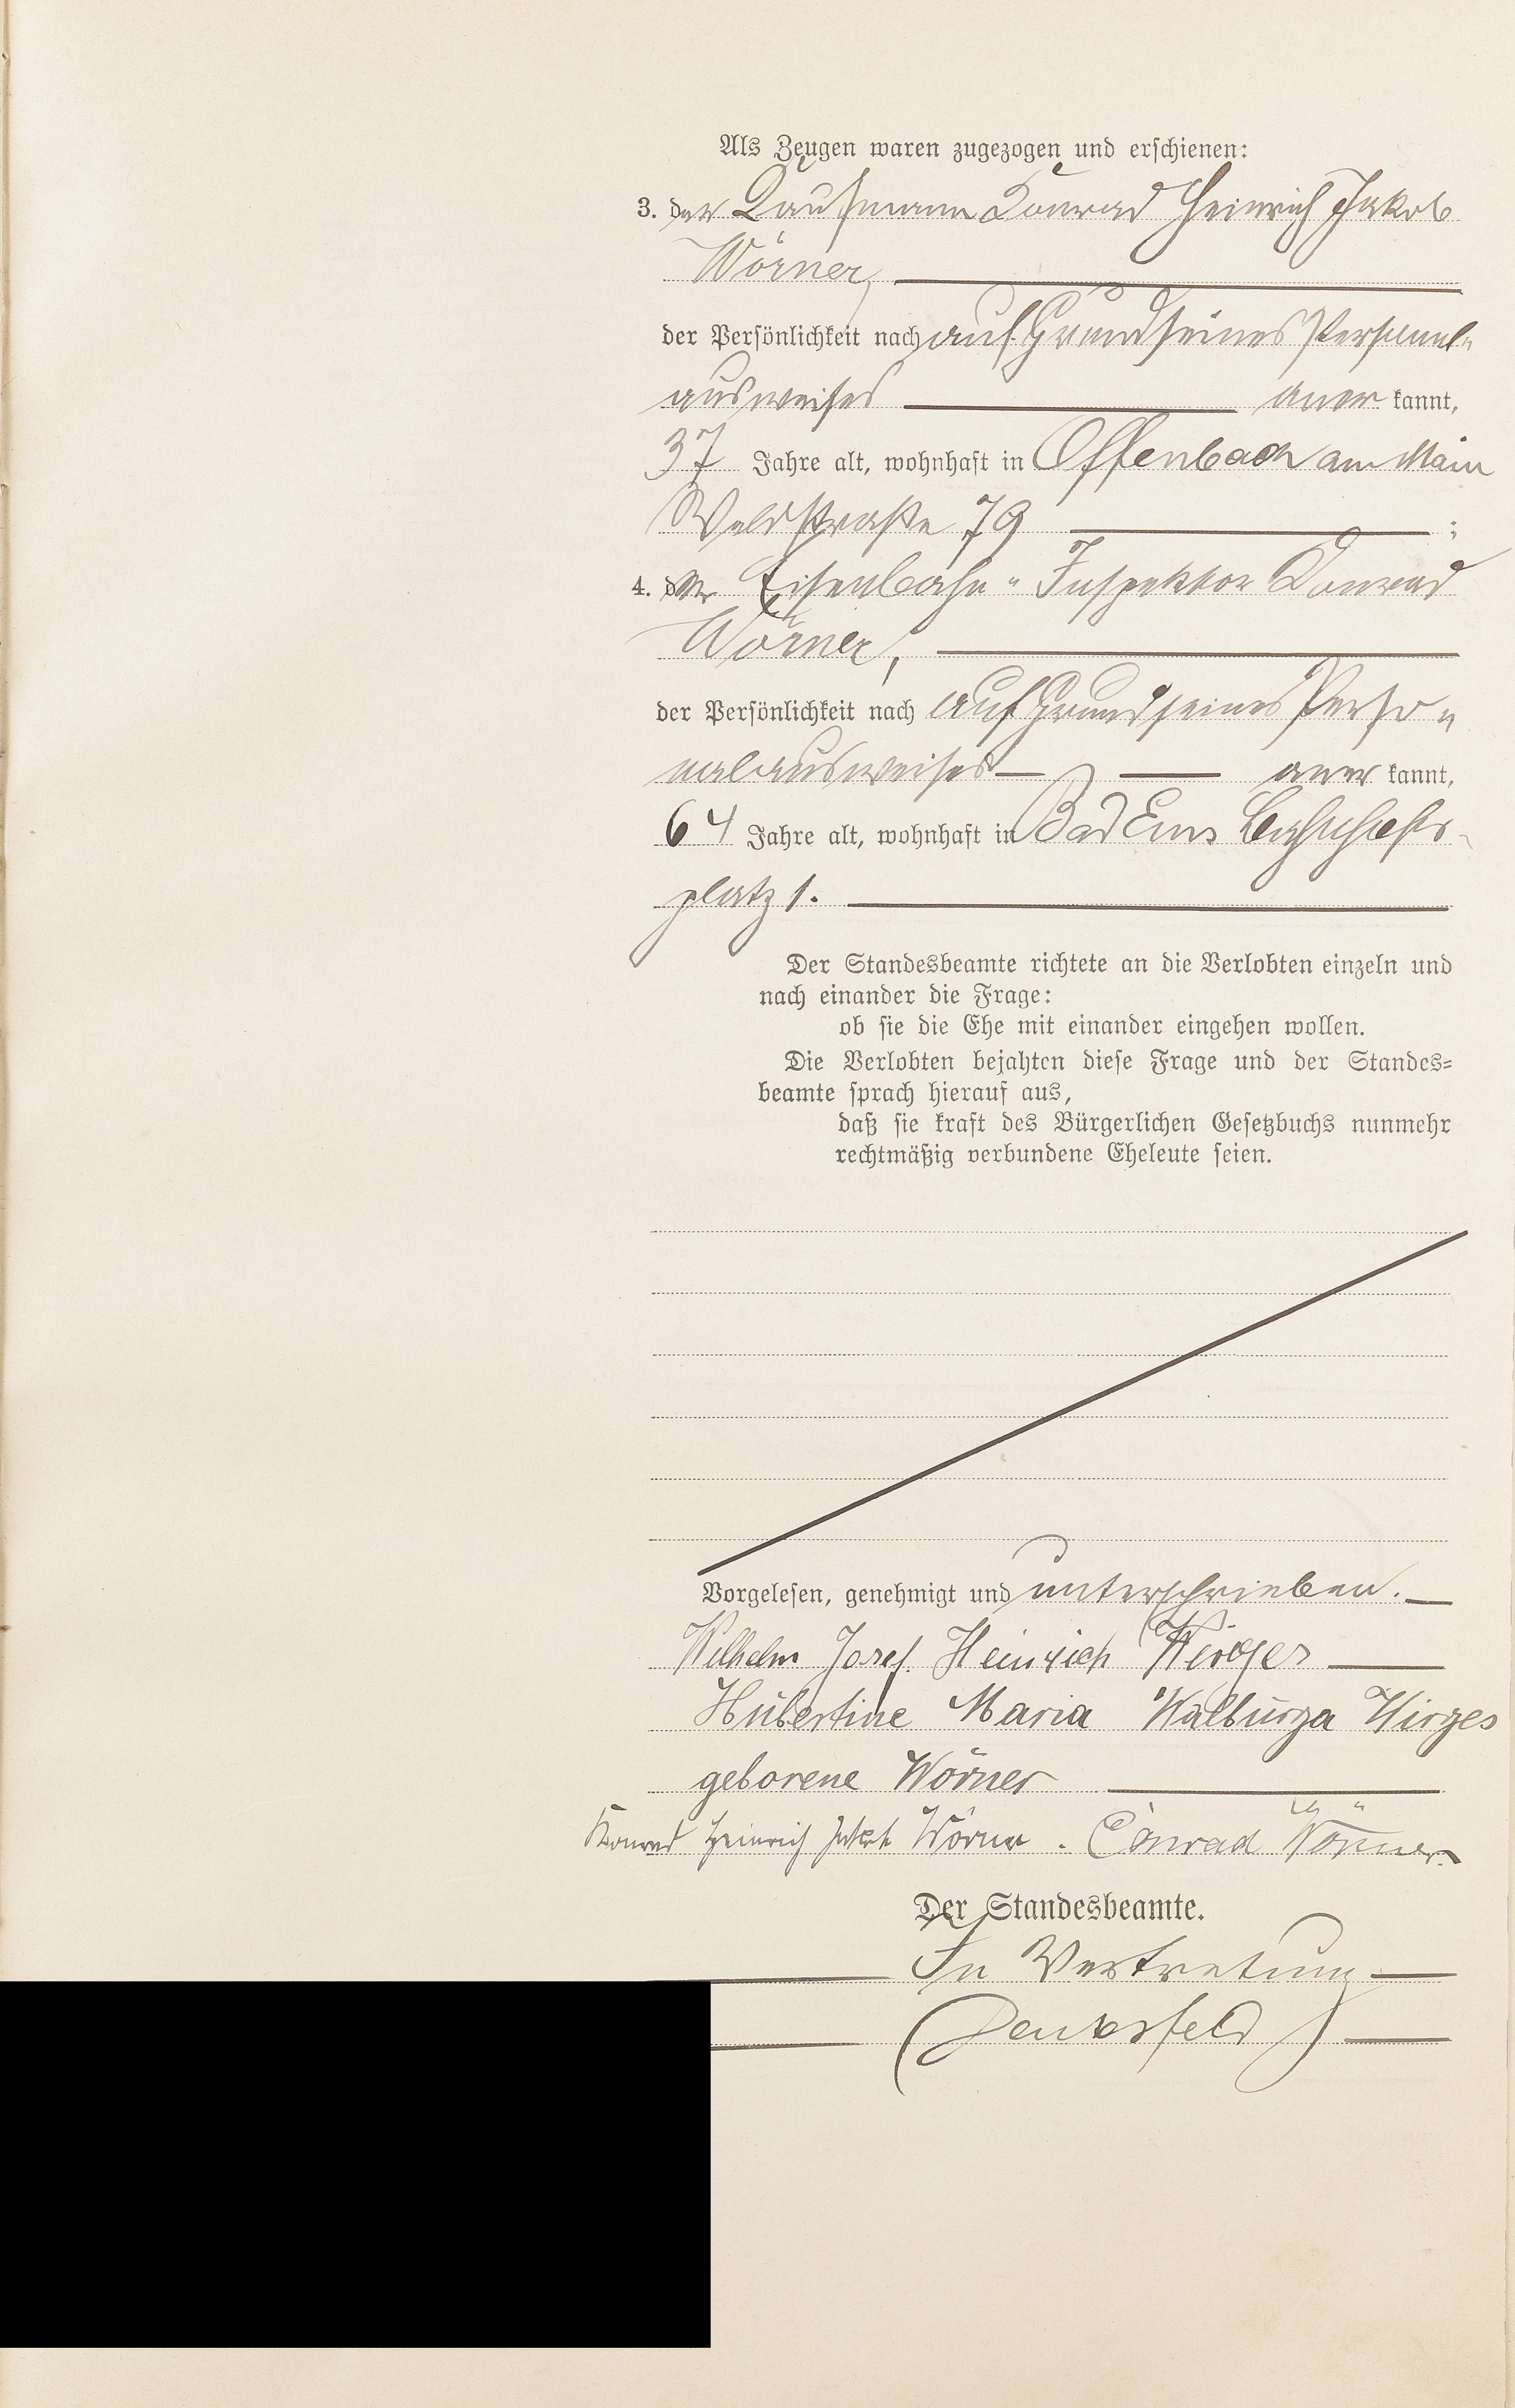 Als Zeugen waren zugezogen und erschienen:
3. der Kaufmann Konrad Heinrich Jakob
Wörner,
der Persönlichkeit nach auf Grund seines Personal-
ausweises aner kannt,
37 Jahre alt, wohnhaft in Offenbach am Main
Waldstraße 79 ;
4. der Eisenbahn-Inspektor Konrad
Wörner,
der Persönlichkeit nach auf Grund seines Perso-
nalausweises aner kannt,
64 Jahre alt, wohnhaft in Bad Ems Bahnhofs-
platz 1.
Der Standesbeamte richtete an die Verlobten einzeln und
nach einander die Frage:
ob sie die Ehe mit einander eingehen wollen.
Die Verlobten bejahten diese Frage und der Standes-
beamte sprach hierauf aus,
daß sie kraft des Bürgerlichen Gesetzbuchs nunmehr
rechtmäßig verbundene Eheleute seien.
Vorgelesen, genehmigt und unterschrieben.
Wilhelm Josef Heinrich Wirges
Hubertine Maria Walburga Wirges
geborene Wörner
Konrad Heinrich Jakob Wörner. Conrad Wörner.
Der Standesbeamte.
In Vertretung